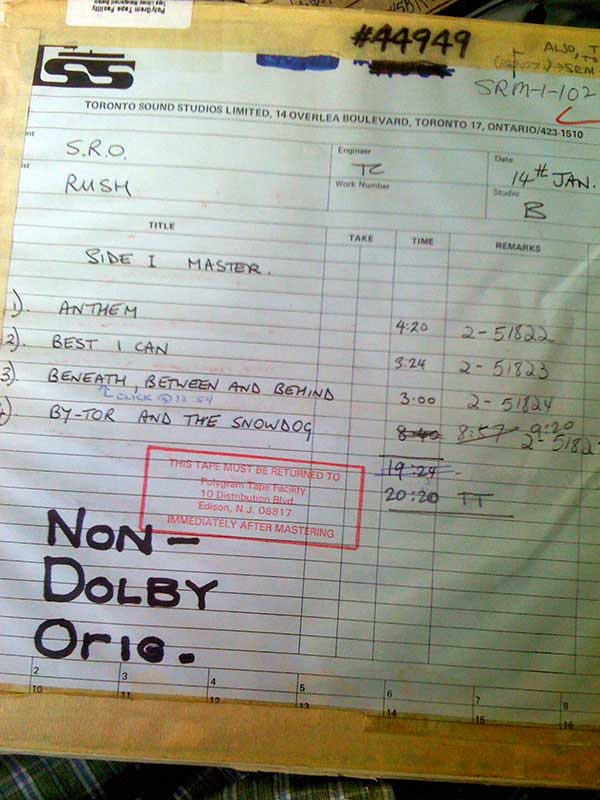 PolyGram Tape Facility
#44949
ALSO, T
SRM-1-102
TSS
TORONTO SOUND STUDIOS LIMITED, 14 OVERLEA BOULEVARD, TORONTO 17, ONTARIO/423-1510
S.R.O.
Engineer
TC
Date
14TH JAN.
RUSH
Work Number
Studio
B
TITLE TAKE TIME REMARKS
SIDE I MASTER.
1). ANTHEM 4:20 2-51822
2). BEST I CAN 3:24 2-51823
3). BENEATH, BETWEEN AND BEHIND 3:00 2-51824
CLICK @ 12:54
4). BY-TOR AND THE SNOWDOG 8:40 8:57 9:20
2-5182
19:24
20:20 TT
THIS TAPE MUST BE RETURNED TO
Polygram Tape Facility
10 Distribution Blvd.
Edison, N.J. 08817
IMMEDIATELY AFTER MASTERING
NON-
DOLBY
ORIG.
2 3 4 5 6 7 8
10 11 12 13 14 15 16